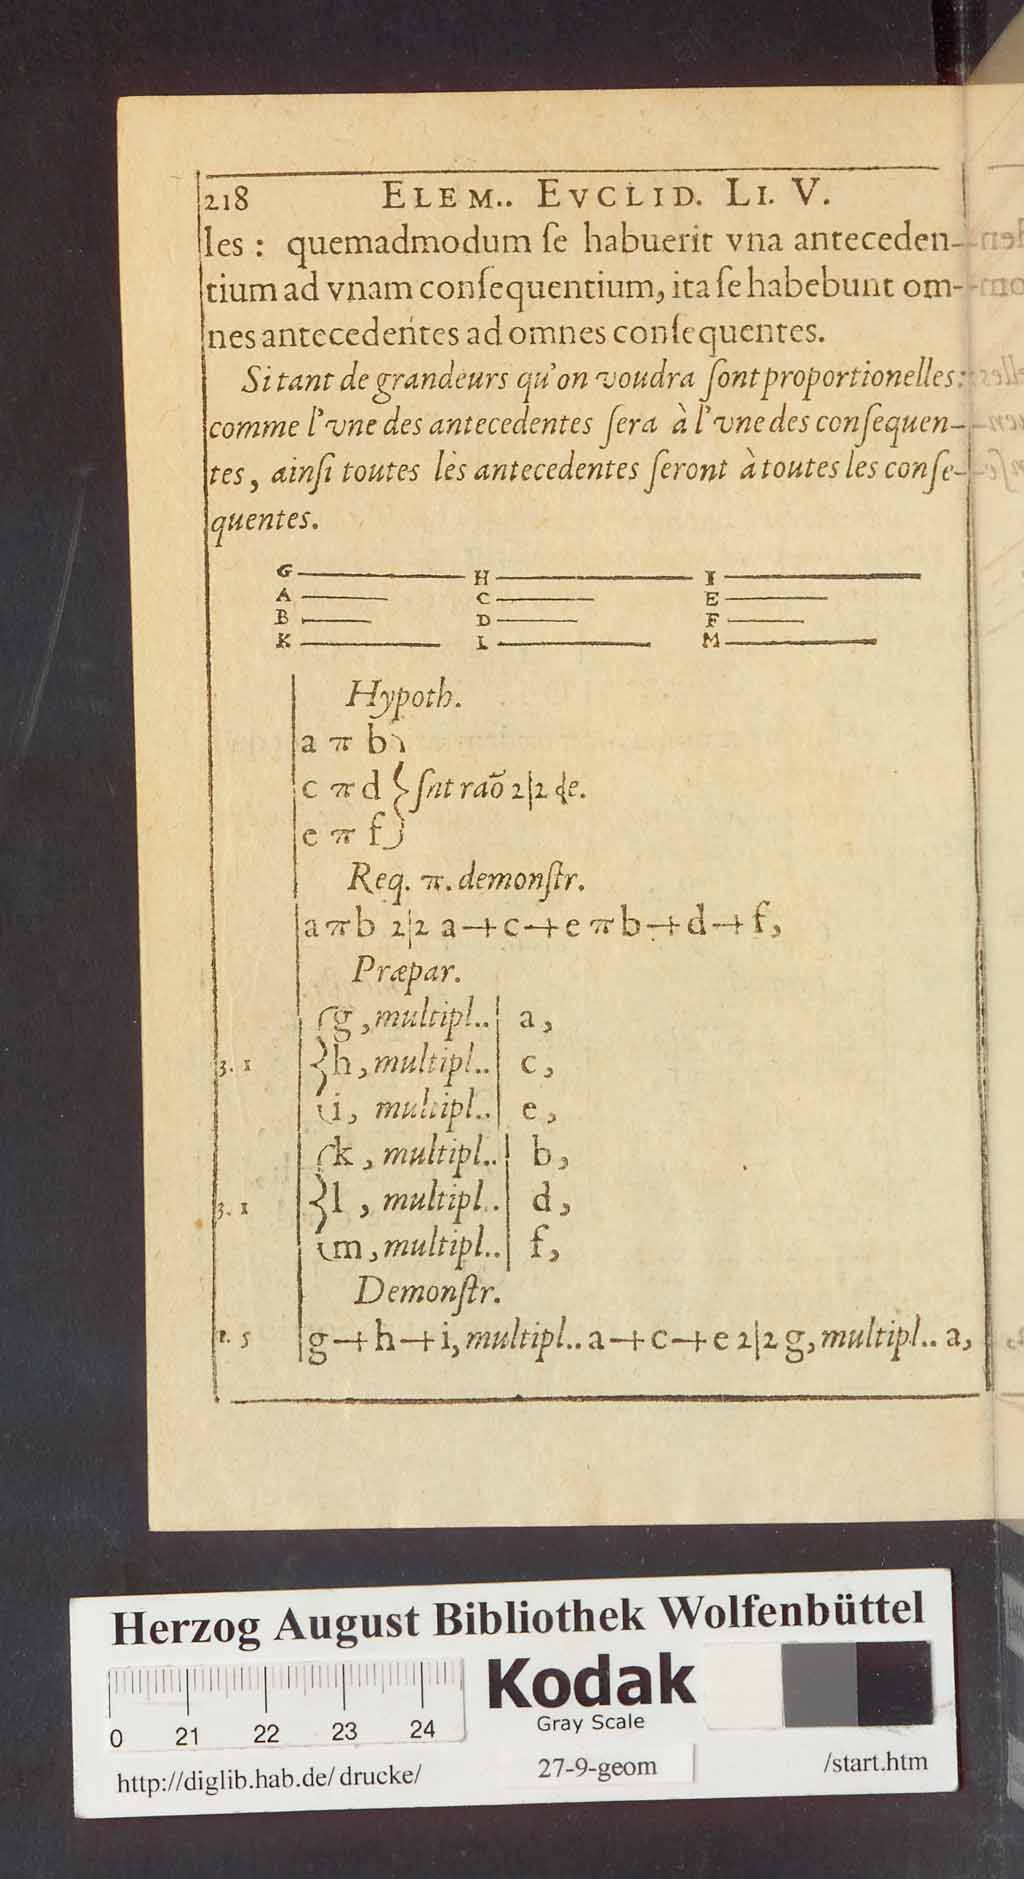 218 ELEM.. EVCLID. LI. V.
les : quemadmodum ſe habuerit vna anteceden-
tium ad vnam conſequentium, ita ſe habebunt om-
nes antecedentes ad omnes conſequentes.
Si tant de grandeurs qu'on voudra ſont proportionelles:
comme l'vne des antecedentes ſera à l'vne des conſequen-
tes, ainſi toutes les antecedentes ſeront à toutes les conſe-
quentes.
G H I
A C E
B D F
K L M
Hypoth.
a π b
c π d } ſnt raõ 2|2 de.
e π f
Req. π. demonſtr.
a π b 2|2 a + c + e π b + d + f,
Præpar.
g, multipl.. | a,
3. 1 h, multipl.. | c,
i, multipl.. | e,
k, multipl.. | b,
3. 1 l, multipl.. | d,
m, multipl.. | f,
Demonſtr.
1. 5 g + h + i, multipl.. a + c + e 2|2 g, multipl.. a,
Herzog August Bibliothek Wolfenbüttel
Kodak
Gray Scale
0 21 22 23 24
http://diglib.hab.de/drucke/ 27-9-geom /start.htm